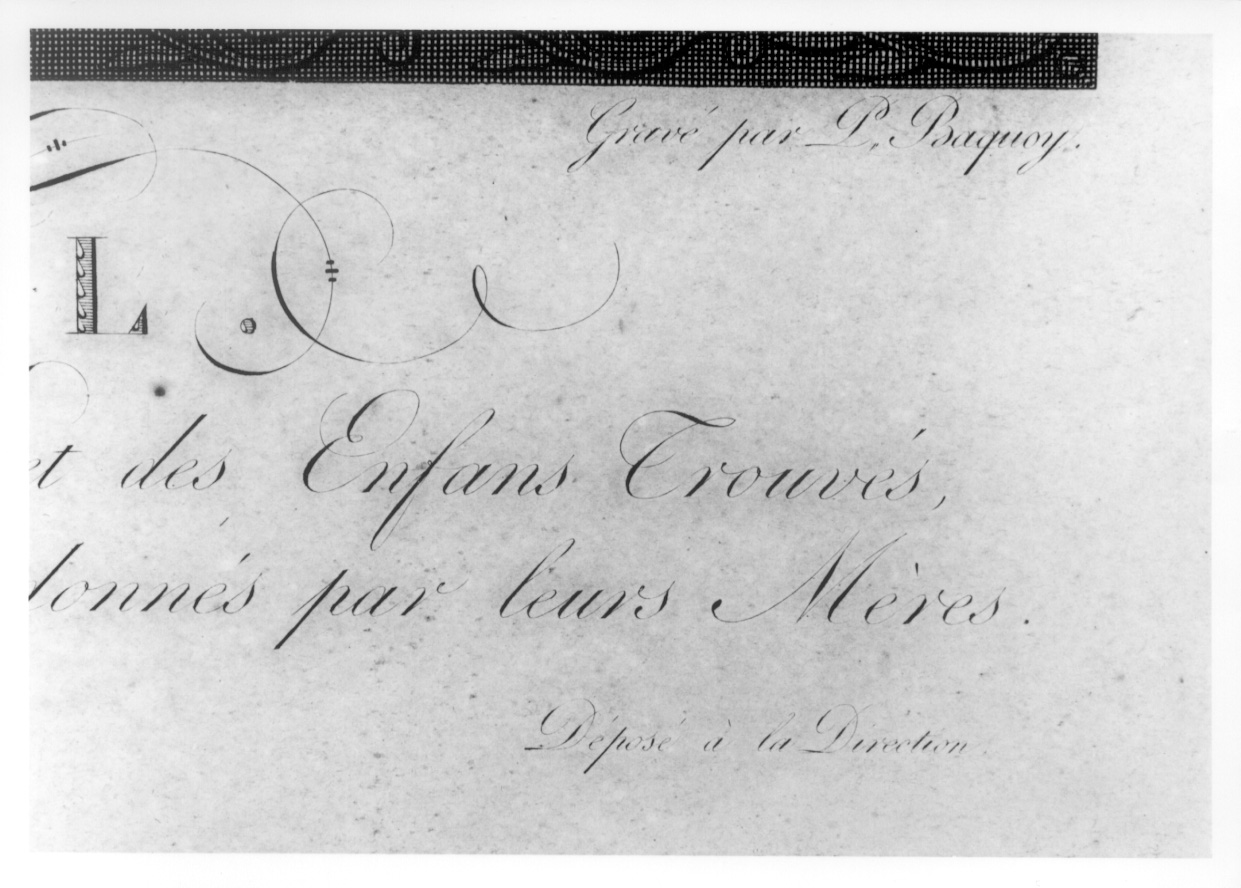 Gravé par P. Baquoy.
L.
et des Enfans Trouvés,
donnés par leurs Mères.
Déposé à la Direction.